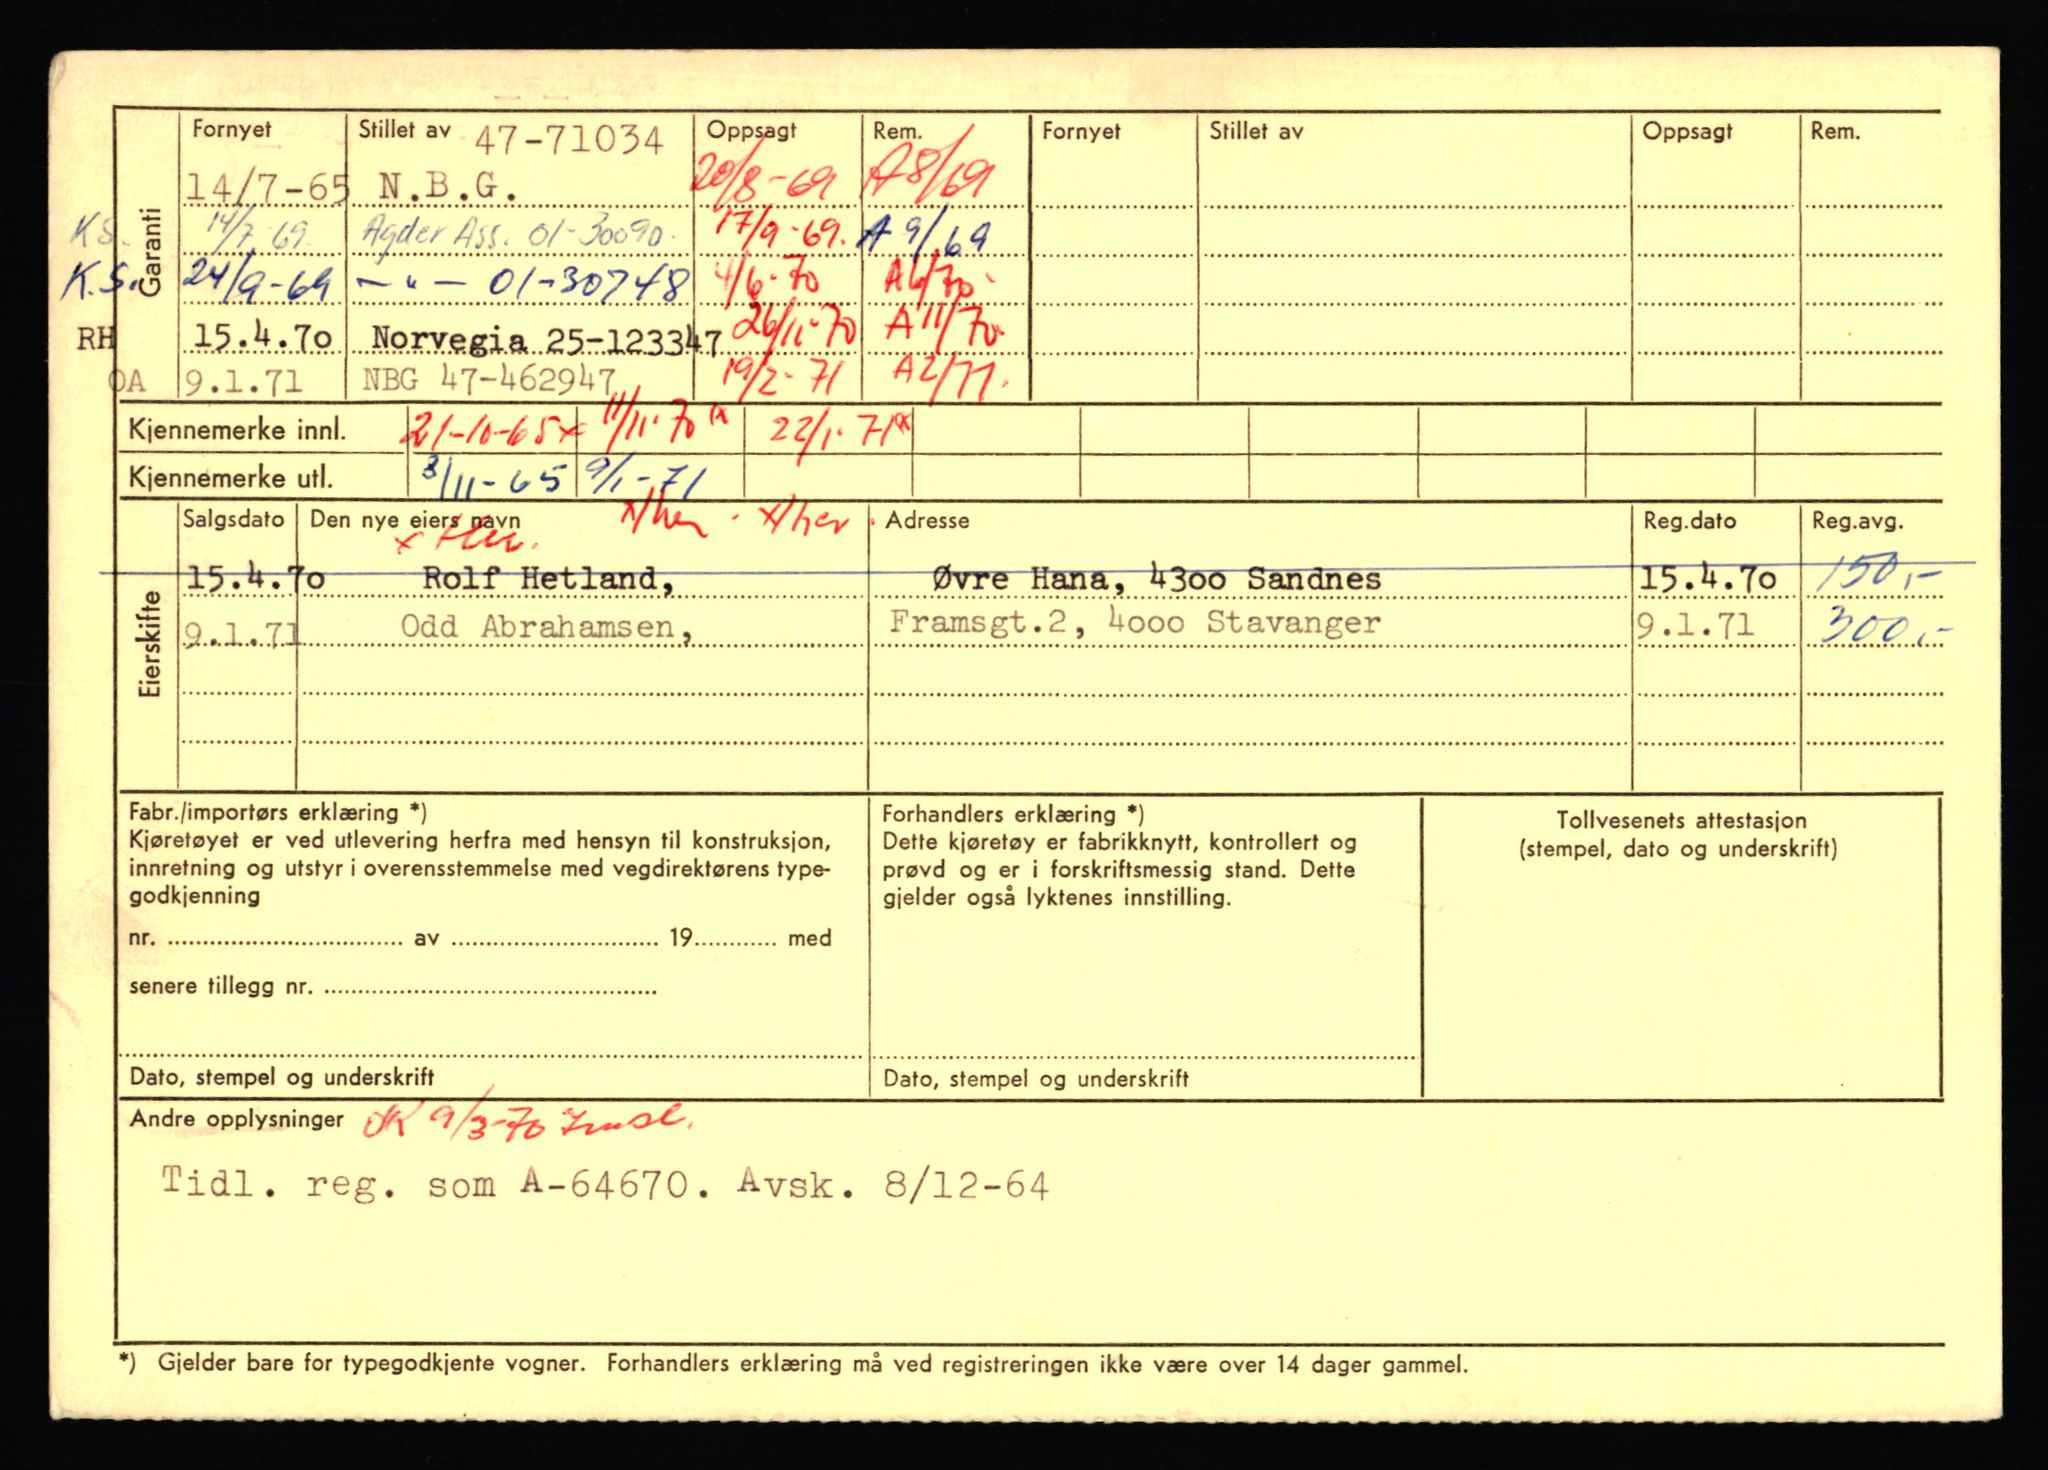 Garanti
Fornyet Stillet av 47-71034 Oppsagt Rem. Fornyet Stillet av Oppsagt Rem.
14/7-65 N.B.G. 20/8-69 A8/69
KS. 14/7-69. Agder Ass. 01-30090. 17/9-69. A 9/69
K.S. 24/9-69 — " — 01-30748 4/6-70 A6/70.
RH 15.4.70 Norvegia 25-123347 26/11-70 A 11/70.
OA 9.1.71 NBG 47-462947 19/2-71 A2/71.
Kjennemerke innl. 21-10-65x 11/11-70 x 22/1-71x
Kjennemerke utl. 3/11-65 9/1-71
Eierskifte
Salgsdato Den nye eiers navn x/her. x/her. Adresse Reg.dato Reg.avg.
x Her.
15.4.70 Rolf Hetland, Øvre Hana, 4300 Sandnes 15.4.70 150,-
9.1.71 Odd Abrahamsen, Framsgt.2, 4000 Stavanger 9.1.71 300,-
Fabr./importørs erklæring *)
Kjøretøyet er ved utlevering herfra med hensyn til konstruksjon,
innretning og utstyr i overensstemmelse med vegdirektørens type-
godkjenning
nr. av 19 med
senere tillegg nr.
Dato, stempel og underskrift
Forhandlers erklæring *)
Dette kjøretøy er fabrikknytt, kontrollert og
prøvd og er i forskriftsmessig stand. Dette
gjelder også lyktenes innstilling.
Dato, stempel og underskrift
Tollvesenets attestasjon
(stempel, dato og underskrift)
Andre opplysninger OK 9/3-70
Tidl. reg. som A-64670. Avsk. 8/12-64
*) Gjelder bare for typegodkjente vogner. Forhandlers erklæring må ved registreringen ikke være over 14 dager gammel.